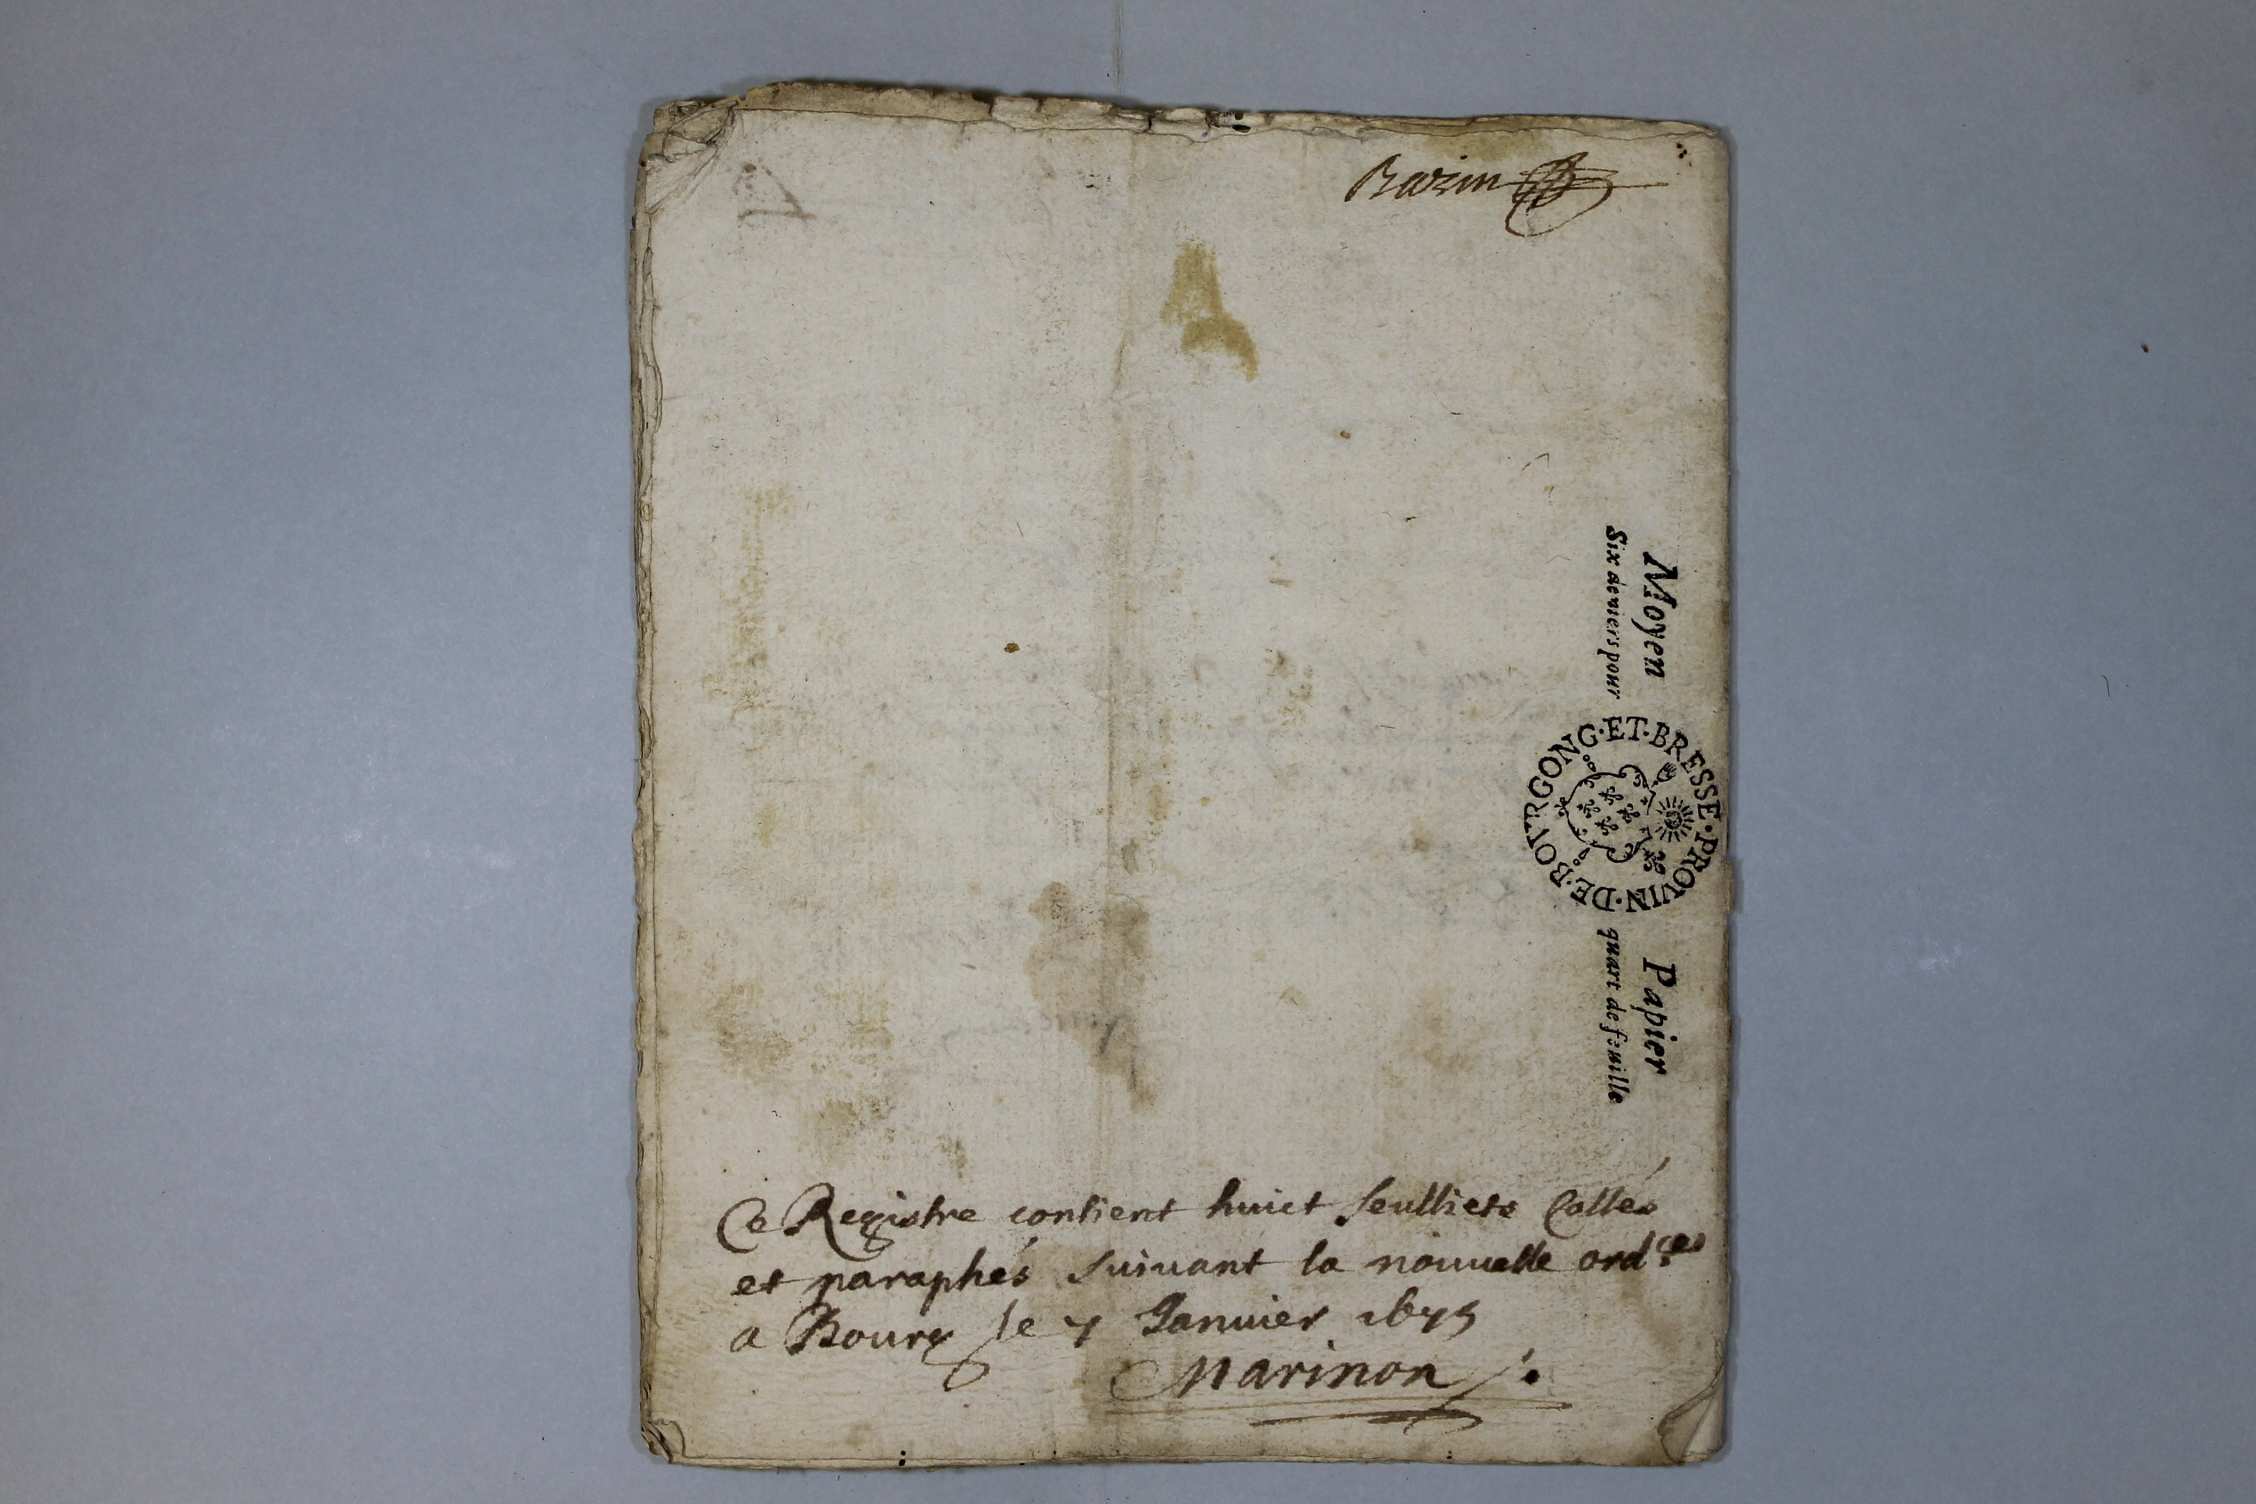 Bazin
Moyen Papier
Six deniers pour quart de feuille
DE·BOVRGONG·ET·BRESSE·PROVIN·
Ce Registre contient huict feulliets Cottés
et paraphés suivant la nouuelle ord.ces
a Bourg le 7 Januier 1675
Marinon